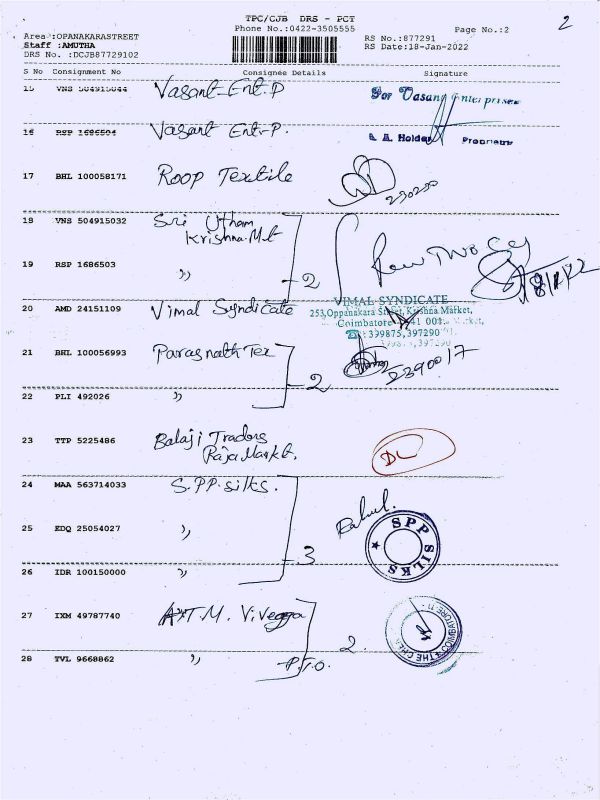 TPC/CJB DRS - PCT
2
Phone No.:0422-3505555
Page No.:2
Area :OPANAKARASTREET
Staff :AMUTHA
DRS No. :DCJB87729102
RS No.:877291
RS Date:18-Jan-2022
S No Consignment No Consignee Details Signature
15 VNS 504915044 Vasant Ent.P
For Vasant Enterprises
16 RSP 1686504 Vasant Ent.P.
Proprietor
17 BHL 100058171 Roop Textile
230230
18 VNS 504915032 Sri Utham
Krishna.Mt
19 RSP 1686503 〃 2
20 AMD 24151109 Vimal Syndicate
VIMAL SYNDICATE
253,Oppanakara Street, Krishna Market,
Coimbatore
: 399875,397290
21 BHL 100056993 Parasnath Tex
2390017
2
22 PLI 492026 〃
23 TTP 5225486 Balaji Traders
Raja Markt.
24 MAA 563714033 S.PP.silks.
Rahul.
SPP SILKS
25 EDQ 25054027 〃
3
26 IDR 100150000 〃
27 IXM 49787740
2
28 TVL 9668862 〃
P.T.O.